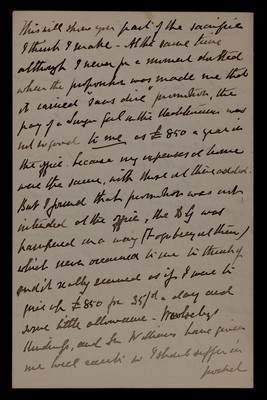 This will show you part of the sacrifice
I think I make - At the same time
although I never for a moment doubted
when the proposition was made me that
it carried "sans dire" promotion, the
pay of a Surgn Genl with the Headquarters was
not so good to me as £850 a year in
the office because my expenses at home
were the same, with those at the added.
But I found that promotion was not
intended at the office, the DG was
hampered in a way
which never occurred to me to think of
and it really seemed as if I were to
give up £850 for 35/- a day and
some little allowance - Wolseley
and Sir William have given
me what so I shant suffer in
pocket